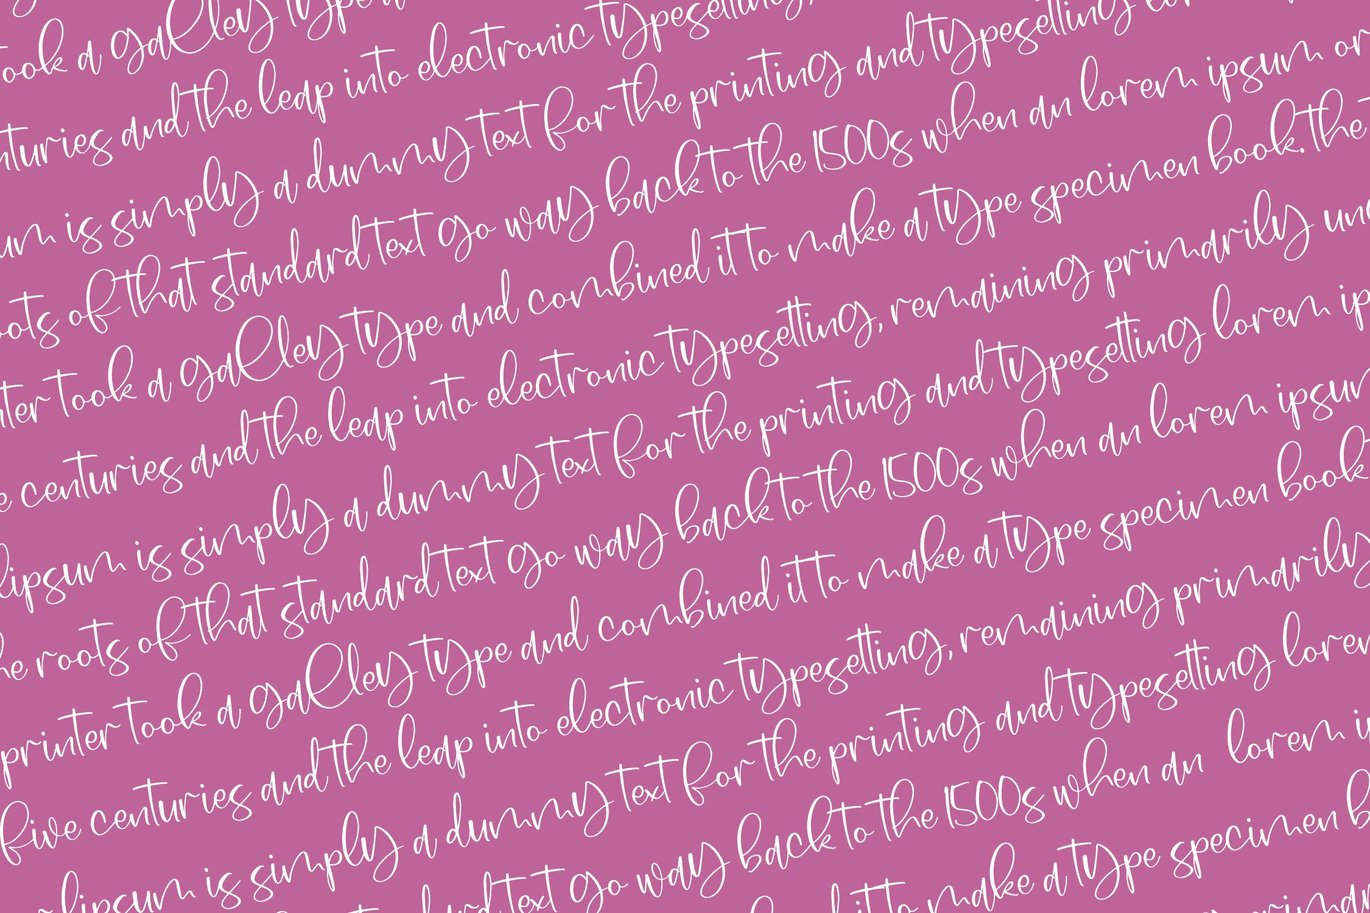 took a galley type
centuries and the leap into electronic typesetting,
ipsum is simply a dummy text for the printing and typesetting lorem
roots of that standard text go way back to the 1500s when an lorem ipsum
printer took a galley type and combined it to make a type specimen book. the
centuries and the leap into electronic typesetting, remaining primarily
lipsum is simply a dummy text for the printing and typesetting lorem
the roots of that standard text go way back to the 1500s when an lorem ipsum
printer took a galley type and combined it to make a type specimen book
five centuries and the leap into electronic typesetting, remaining primarily
lipsum is simply a dummy text for the printing and typesetting lorem
text go way back to the 1500s when an lorem
it to make a type specimen